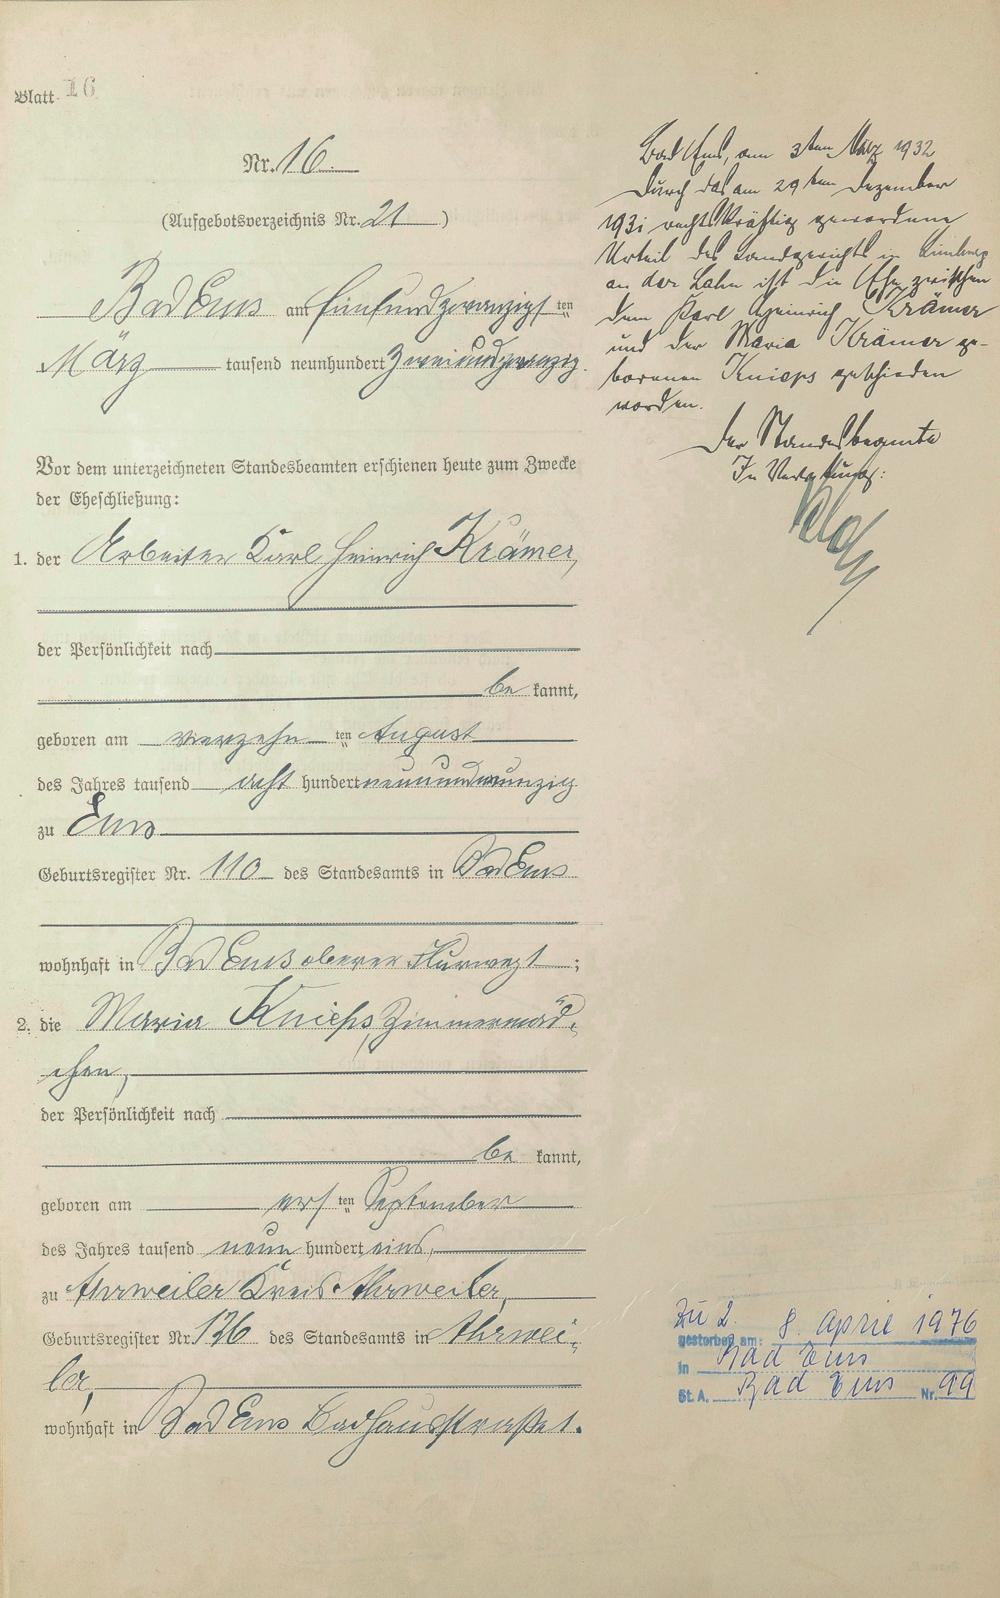 Blatt 16
Nr. 16.
(Aufgebotsverzeichnis Nr. 21)
Bad Ems am fünfundzwanzigsten
März tausend neunhundert zweiundzwanzig.
Vor dem unterzeichneten Standesbeamten erschienen heute zum Zwecke
der Eheschließung:
1. der Arbeiter Karl Heinrich Krämer,
der Persönlichkeit nach
be kannt,
geboren am vierzehn ten August
des Jahres tausend acht hundert neunundneunzig
zu Ems
Geburtsregister Nr. 110 des Standesamts in Bad Ems
wohnhaft in Bad Ems oberer ;
2. die Maria Knieps, Zimmermäd-
chen,
der Persönlichkeit nach
be kannt,
geboren am ers ten September
des Jahres tausend neun hundert eins,
zu Ahrweiler Kreis Ahrweiler,
Geburtsregister Nr. 126 des Standesamts in Ahrwei-
ler,
wohnhaft in Bad Ems Badhausstraße 1.
Bad Ems, am 3ten März 1932
Durch das am 29ten Dezember
1931 rechtskräftig gewordene
Urteil des Landgerichts in Limburg
an der Lahn ist die Ehe zwischen
dem Karl Heinrich Krämer
und der Maria Krämer ge-
borenen Knieps geschieden
worden.
Der Standesbeamte
In Vertretung:
Zu 2.
gestorben am: 8. April 1976
in Bad Ems
St. A. Bad Ems Nr. 99